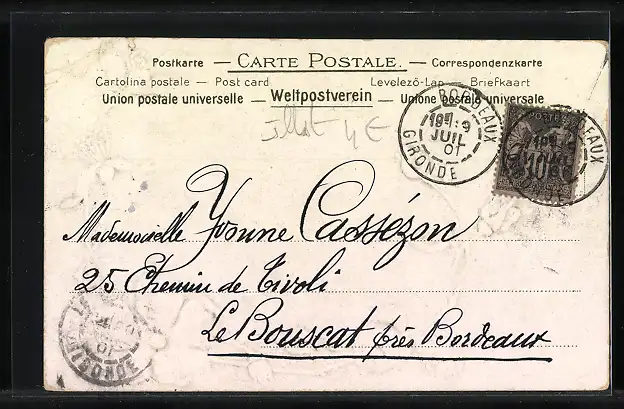 Postkarte — CARTE POSTALE. — Correspondenzkarte
Cartolina postale — Post card Levelező-Lap — Briefkaart
Union postale universelle — Weltpostverein — Unione postale universale
4 €
BORDEAUX
JUIL
01
GIRONDE
POSTES
10
Mademoiselle Yvonne Cassézon
25 Chemin de Tivoli
Le Bouscat près Bordeaux
01
GIRONDE